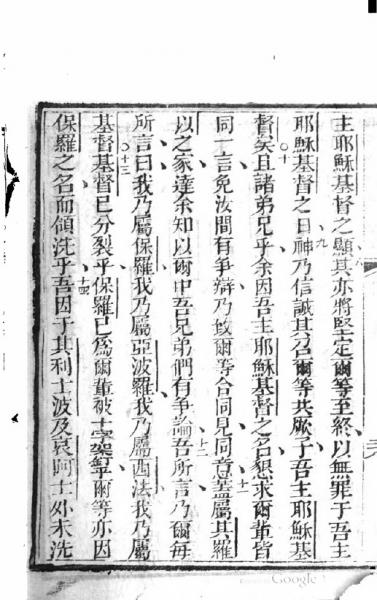 主耶穌基督之顯八其亦將堅定爾等至終以無罪于吾主
耶穌基督之日九神乃信誠其召爾等共厥子吾主耶穌基
督矣十且諸弟兄乎余因吾主耶穌基督之名懇求爾輩皆
同一言免汝間有爭辯乃致爾等合同見同意十一蓋屬其羅
以之家達余知以爾中吾兄弟們有爭論十二吾所言乃爾每
所言曰我乃屬保羅我乃屬亞波羅我乃屬西法我乃屬
基督十三基督已分裂乎保羅已為爾輩被十字架釘乎爾等亦因
保羅之名而領洗乎十四吾因于其利士波及哀阿士外未洗
Google